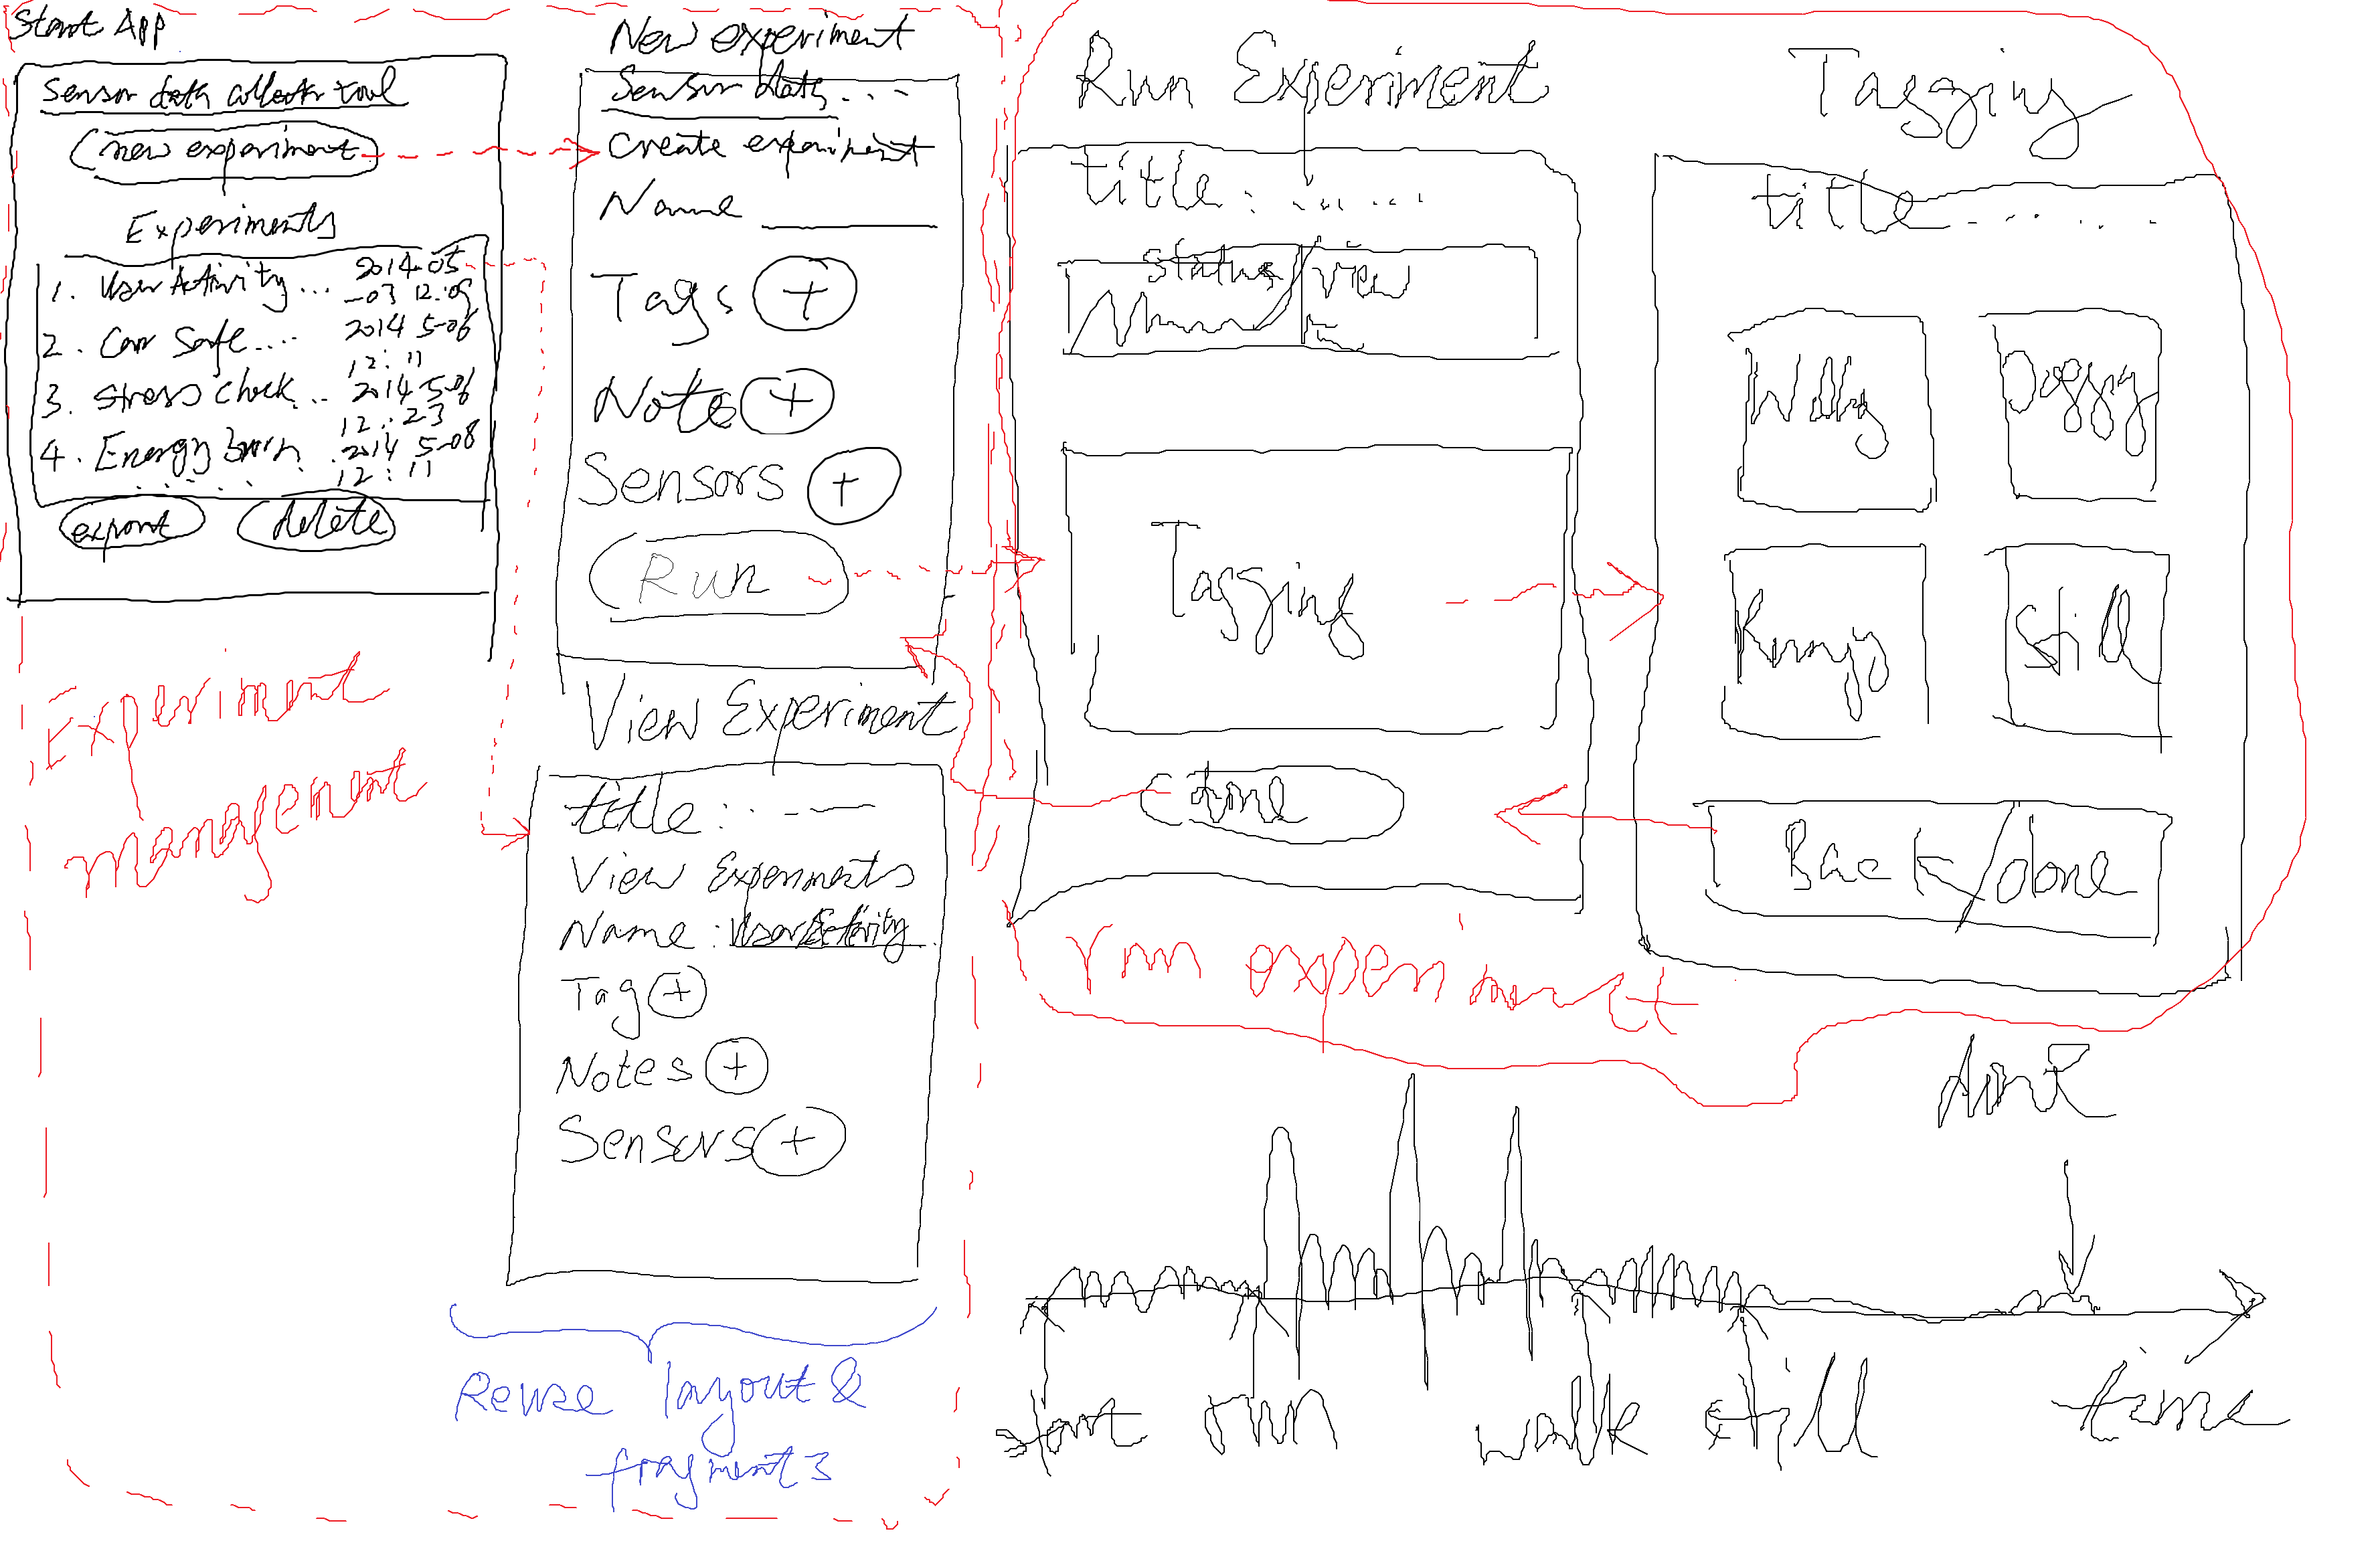 Start App
Sensor data collector tool
new experiment
Experiments
1. User Activity ... 2014-05
-03 12:09
2. Car Safe .... 2014 5-06
12:11
3. Stress Check ... 2014 5-06
12:23
4. Energy Burn . 2014 5-08
12:11
export
delete
Experiment
management
New experiment
Sensor data ...
Create experiment
Name
Tags +
Notes +
Sensors +
Run
View Experiment
title:
View Experiments
Name: User Activity
Tag +
Notes +
Sensors +
Reuse layout &
fragments
Run Experiment
title: .......
status/view
Tagging
done
run experiment
Tagging
title
Still
Back/done
start
run
walk
still
time